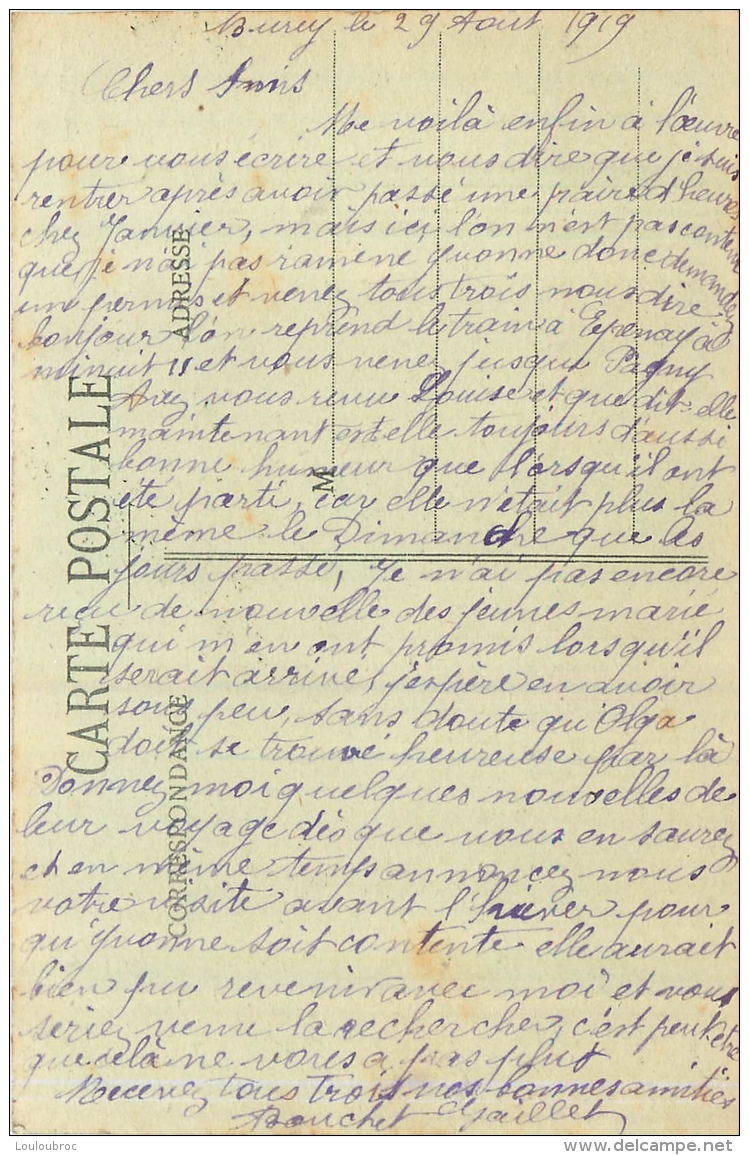 le 29 Aout 1919
Chers Amis
Me voilà enfin à l'œuvre
pour vous écrire et vous dire que je suis
rentrer après avoir passé une paire d'heures
chez Janvier, mais ici l'on n'est pas contente
que je n'ai pas ramené Yvonne donc demandez
un permis et venez tous trois nous dire
bonjour l'on reprend le train à Epernay à
minuit 11 et vous venez jusque Pagny
Avez vous revu Louise et que dit-elle
maintenant est elle toujours d'aussi
bonne humeur que lorsqu'il ont
été parti, car elle n'était plus la
même le Dimanche que les
jours passé, Je n'ai pas encore
reçu de nouvelle des jeunes marié
qui m'en ont promis lorsqu'il
serait arrivé, j'espère en avoir
sous peu, sans doute qu'Olga
doit se trouvé heureuse par là
Donnez moi quelques nouvelles de
leur voyage dès que vous en saurez
et en même temps annoncez nous
votre visite avant l'hiver pour
qu'Yvonne soit contente elle aurait
bien pu revenir avec moi et vous
seriez venu la rechercher, c'est peut-être
que cela ne vous a pas plut
Recevez tous trois nos bonnes amitiés
Bouchet Gaillet
CARTE POSTALE
CORRESPONDANCE
ADRESSE
M
Louloubroc
www.delcampe.net